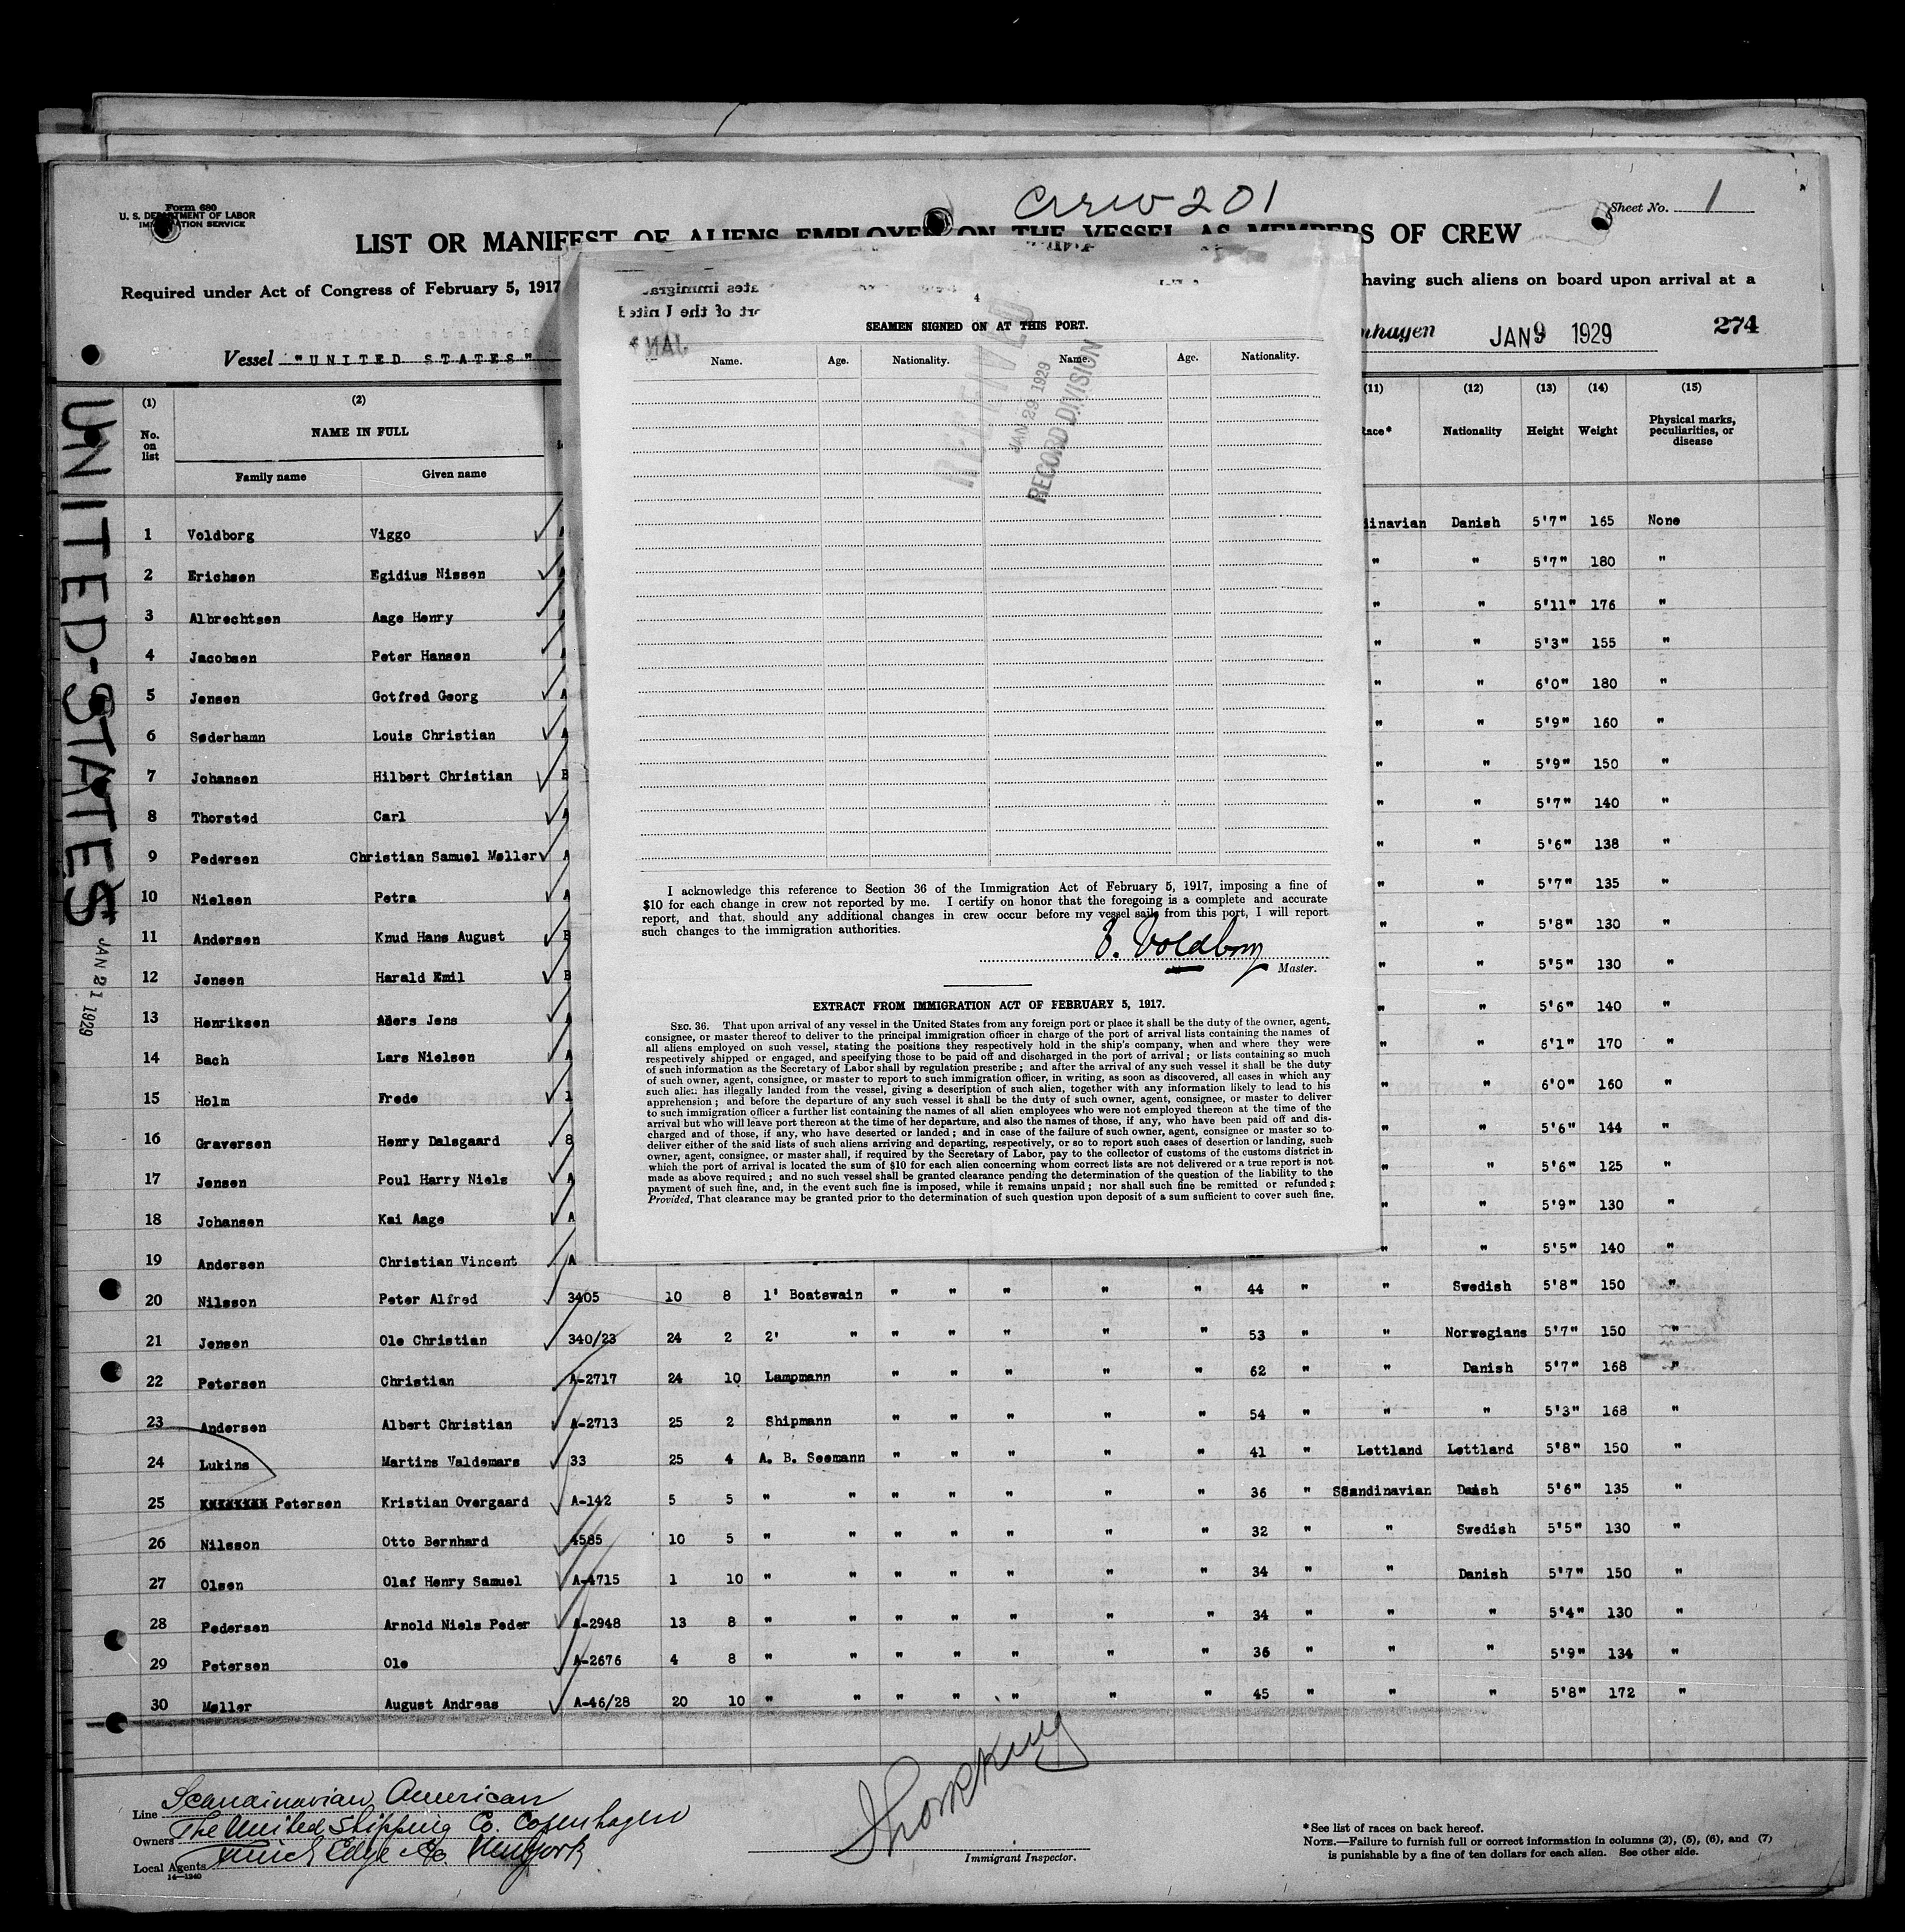 Crew 201
Form 680
U. S. DEPARTMENT OF LABOR
IMMIGRATION SERVICE
Sheet No. 1
LIST OR MANIFEST OF ALIENS EMPLOYED ON THE VESSEL AS MEMBERS OF CREW
Required under Act of Congress of February 5, 1917
having such aliens on board upon arrival at a
Vessel "UNITED STATES"
nhagen JAN 9 1929 274
UNITED-STATES
JAN 21 1929
(1) (2) (11) (12) (13) (14) (15)
No. on list NAME IN FULL Nationality Height Weight Physical marks, peculiarities, or disease
Family name Given name
1 Voldborg Viggo inavian Danish 5'7" 165 None
2 Erichsen Egidius Nissen " " 5'7" 180 "
3 Albrechtsen Aage Henry " " 5'11" 176 "
4 Jacobsen Peter Hansen " " 5'3" 155 "
5 Jensen Gotfred Georg A " " 6'0" 180 "
6 Søderhamn Louis Christian A " " 5'9" 160 "
7 Johansen Hilbert Christian B " " 5'9" 150 "
8 Thorsted Carl A " " 5'7" 140 "
9 Pedersen Christian Samuel Møller A " " 5'6" 138 "
10 Nielsen Petra A " " 5'7" 135 "
11 Andersen Knud Hans August B " " 5'8" 130 "
12 Jensen Harald Emil B " " 5'5" 130 "
13 Henriksen Aners Jens A " " 5'6" 140 "
14 Bach Lars Nielsen A " " 6'1" 170 "
15 Holm Frede 1 " " 6'0" 160 "
16 Graversen Henry Dalsgaard 8 " " 5'6" 144 "
17 Jensen Poul Harry Niels A " " 5'6" 125 "
18 Johansen Kai Aage A " " 5'9" 130 "
19 Andersen Christian Vincent A " " 5'5" 140 "
20 Nilsson Peter Alfred 3405 10 8 1' Boatswain " " " " " 44 " " Swedish 5'8" 150 "
21 Jensen Ole Christian 340/23 24 2 2' " " " " " " 53 " " Norwegians 5'7" 150 "
22 Petersen Christian A-2717 24 10 Lampmann " " " " " 62 " " Danish 5'7" 168 "
23 Andersen Albert Christian A-2713 25 2 Shipmann " " " " " 54 " " " 5'3" 168 "
24 Lukins Martins Valdemars 33 25 4 A. B. Seemann " " " " " 41 " Lettland Lettland 5'8" 150 "
25 Petersen Kristian Overgaard A-142 5 5 " " " " " " " 36 " Scandinavian Danish 5'6" 135 "
26 Nilsson Otto Bernhard 4585 10 5 " " " " " " " 32 " " Swedish 5'5" 130 "
27 Olsen Olaf Henry Samuel A-4715 1 10 " " " " " " " 34 " " Danish 5'7" 150 "
28 Pedersen Arnold Niels Peder A-2948 13 8 " " " " " " " 34 " " " 5'4" 130 "
29 Petersen Ole A-2676 4 8 " " " " " " " 36 " " " 5'9" 134 "
30 Møller August Andreas A-46/28 20 10 " " " " " " " 45 " " " 5'8" 172 "
4
SEAMEN SIGNED ON AT THIS PORT.
Name. Age. Nationality. Name. Age. Nationality.
RECEIVED
JAN 29 1929
RECORD DIVISION
I acknowledge this reference to Section 36 of the Immigration Act of February 5, 1917, imposing a fine of
$10 for each change in crew not reported by me. I certify on honor that the foregoing is a complete and accurate
report, and that, should any additional changes in crew occur before my vessel sails from this port, I will report
such changes to the immigration authorities.
V. Voldborg
Master.
EXTRACT FROM IMMIGRATION ACT OF FEBRUARY 5, 1917.
SEC. 36. That upon arrival of any vessel in the United States from any foreign port or place it shall be the duty of the owner, agent,
consignee, or master thereof to deliver to the principal immigration officer in charge of the port of arrival lists containing the names of
all aliens employed on such vessel, stating the positions they respectively hold in the ship's company, when and where they were
respectively shipped or engaged, and specifying those to be paid off and discharged in the port of arrival; or lists containing so much
of such information as the Secretary of Labor shall by regulation prescribe; and after the arrival of any such vessel it shall be the duty
of such owner, agent, consignee, or master to report to such immigration officer, in writing, as soon as discovered, all cases in which any
such alien has illegally landed from the vessel, giving a description of such alien, together with any information likely to lead to his
apprehension; and before the departure of any such vessel it shall be the duty of such owner, agent, consignee, or master to deliver
to such immigration officer a further list containing the names of all alien employees who were not employed thereon at the time of the
arrival but who will leave port thereon at the time of her departure, and also the names of those, if any, who have been paid off and dis-
charged and of those, if any, who have deserted or landed; and in case of the failure of such owner, agent, consignee or master so to
deliver either of the said lists of such aliens arriving and departing, respectively, or so to report such cases of desertion or landing, such
owner, agent, consignee, or master shall, if required by the Secretary of Labor, pay to the collector of customs of the customs district in
which the port of arrival is located the sum of $10 for each alien concerning whom correct lists are not delivered or a true report is not
made as above required; and no such vessel shall be granted clearance pending the determination of the question of the liability to the
payment of such fine, and, in the event such fine is imposed, while it remains unpaid; nor shall such fine be remitted or refunded:
Provided, That clearance may be granted prior to the determination of such question upon deposit of a sum sufficient to cover such fine.
Line Scandinavian American
Owners The United Shipping Co. Copenhagen
Local Agents Funch Edye & Co. New York
14—1240
Immigrant Inspector.
*See list of races on back hereof.
NOTE.—Failure to furnish full or correct information in columns (2), (5), (6), and (7)
is punishable by a fine of ten dollars for each alien. See other side.